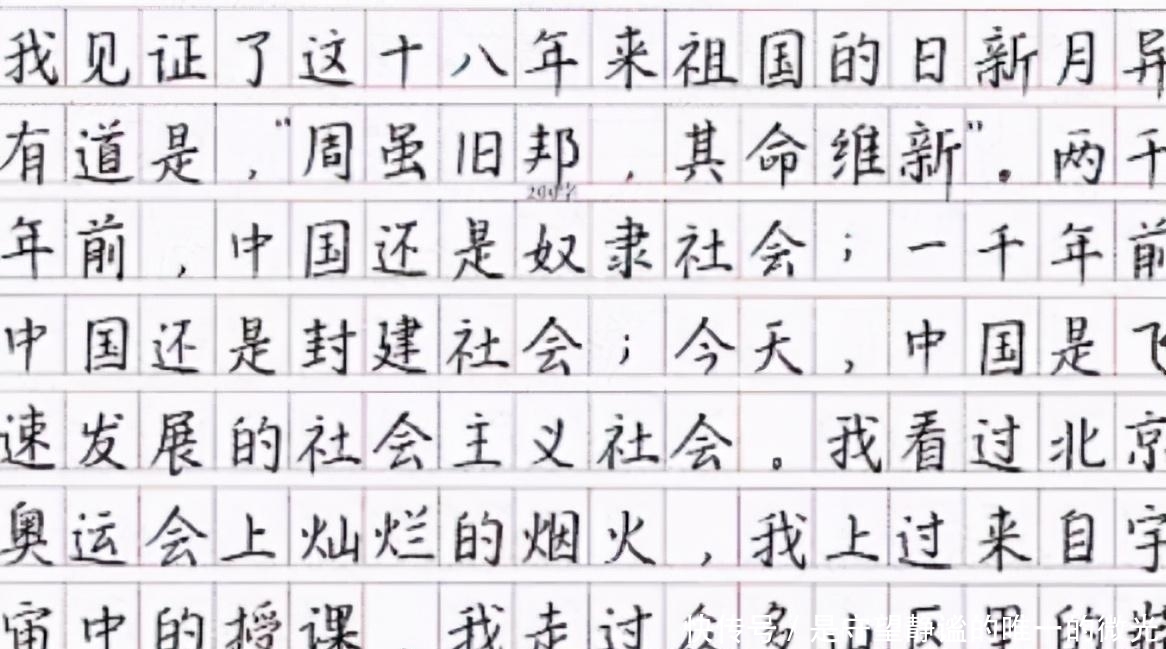 我见证了这十八年来祖国的日新月异
有道是，“周虽旧邦，其命维新”。两千
200字
年前，中国还是奴隶社会；一千年前
中国还是封建社会；今天，中国是飞
速发展的社会主义社会。我看过北京
奥运会上灿烂的烟火，我上过来自宇
宙中的授课，我走过众多
快传号/是守望静谧的唯一的微光